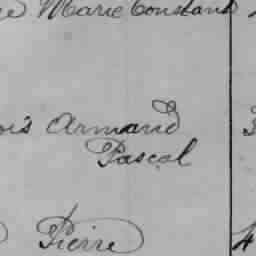 Marie Constant
ois Armand
Pascal
Pierre 4